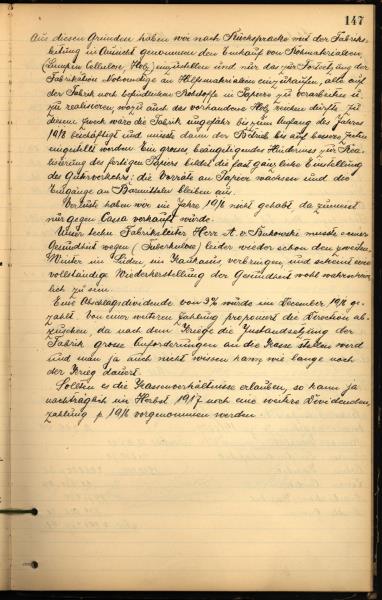 147
Aus diesen Gründen haben wir nach Rücksprache mit der Fabriks-
leitung in Aussicht genommen den Einkauf von Rohmaterialien,
(Lumpen Cellulose, Holz) einzustellen und nur das zur Fortsetzung der
Fabrikation Notwendige an Hilfsmaterialien einzukaufen, alle auf
der Fabrik noch befindlichen Rohstoffe in Papiere zu verarbeiten u.
zu realisieren wozu auch das vorhandene Holz reichen dürfte, zu
diesem Zweck wäre die Fabrik ungefähr bis zum Anfang des Jahres
1918 beschäftigt und müsste dann der Betrieb bis auf bessere Zeiten
eingestellt werden. Ein grosses, beängstigendes Hindernis zur Rea-
lisierung des fertigen Papiers bildet die fast gänzliche Einstellung
des Güterverkehrs; die Vorräte an Papier wachsen und die
Eingänge an Barmitteln bleiben aus.
Verluste haben wir im Jahre 1916 nicht gehabt, da zumeist
nur gegen Cassa verkauft wurde.
Unser techn. Fabriksleiter Herr A. v. Bukowski musste seiner
Gesundheit wegen (Tuberkulose) leider wieder schon den zweiten
Winter im Süden im Kurhause verbringen und scheint eine
vollständige Wiederherstellung der Gesundheit wohl wahrschein-
lich zu sein.
Eine Abschlagsdividende von 3% wurde im December 1916 ge-
zahlt. Von einer weiteren Zahlung proponiert die Direction ab-
zusehen, da nach dem Kriege die Instandsetzung der
Fabrik grosse Anforderungen an die Kasse stellen wird
und man ja auch nicht wissen kann, wie lange noch
der Krieg dauert.
Sollten es die Kassenverhältnisse erlauben, so kann ja
nachträglich im Herbst 1917 noch eine weitere Dividenden-
zahlung p. 1916 vorgenommen werden.